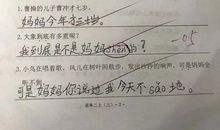 1.曹操的儿子曹冲才七岁。
妈妈今年才三十岁。
2.大象到底有多重呢?
我到底是不是妈妈shēng的?
-0.5
3.小鸟在唱着歌,风儿在树叶间散步,发出沙沙的响声,可是妈妈
听不到。
可是妈妈你说过我今天不sǎo地。
语第二上(三)-2-